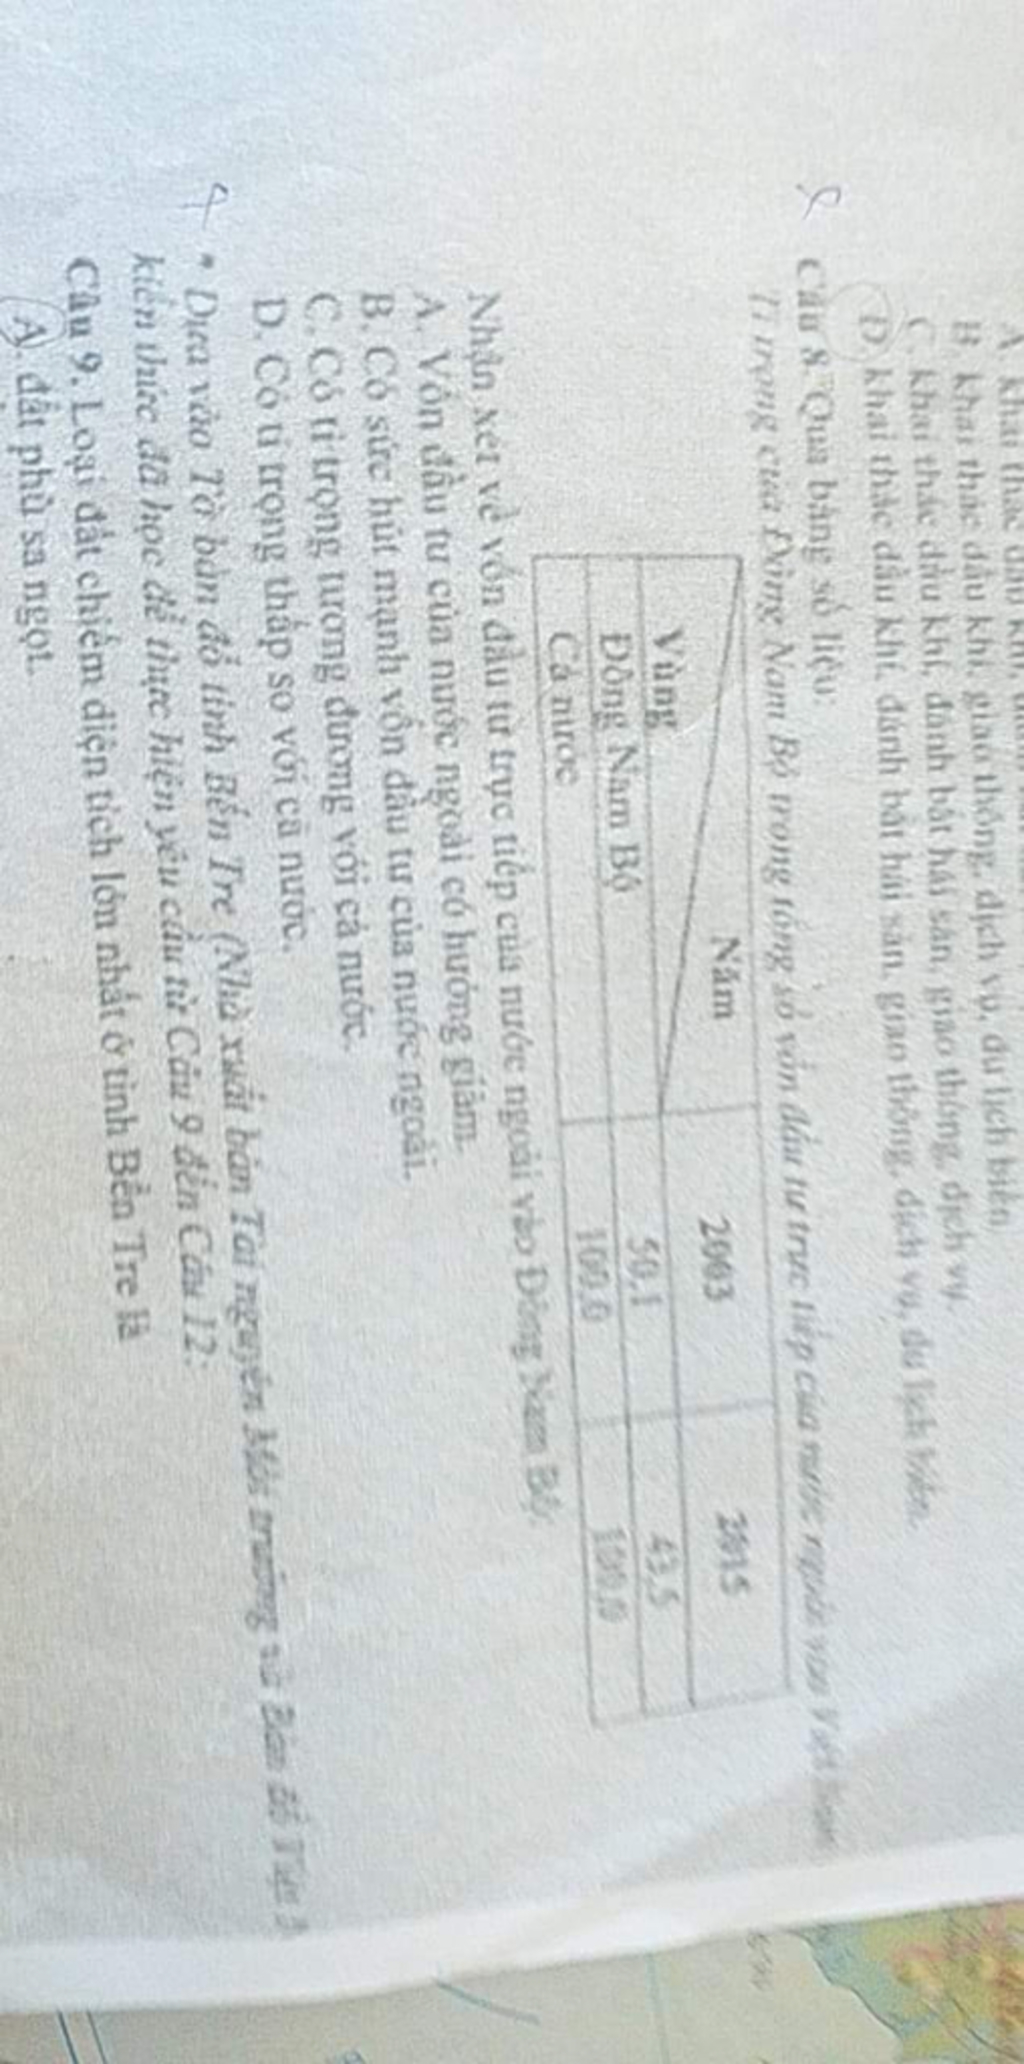 A. khai thác dầu khí,
B. khai thác dầu khí, giao thông, dịch vụ, du lịch biển.
C. khai thác dầu khí, đánh bắt hải sản, giao thông, dịch vụ.
D. khai thác dầu khí, đánh bắt hải sản, giao thông, dịch vụ, du lịch biển.
Câu 8. Qua bảng số liệu:
Tỉ trọng của Đông Nam Bộ trong tổng số vốn đầu tư trực tiếp của nước ngoài vào Việt Nam
Năm 2003 2015
Vùng
Đông Nam Bộ 50,1 43,5
Cả nước 100,0 100,0
Nhận xét về vốn đầu tư trực tiếp của nước ngoài vào Đông Nam Bộ:
A. Vốn đầu tư của nước ngoài có hướng giảm.
B. Có sức hút mạnh vốn đầu tư của nước ngoài.
C. Có tỉ trọng tương đương với cả nước.
D. Có tỉ trọng thấp so với cả nước.
• Dựa vào Tờ bản đồ tỉnh Bến Tre (Nhà xuất bản Tài nguyên Môi trường và Bản đồ Việt
kiến thức đã học để thực hiện yêu cầu từ Câu 9 đến Câu 12:
Câu 9. Loại đất chiếm diện tích lớn nhất ở tỉnh Bến Tre là
A. đất phù sa ngọt.